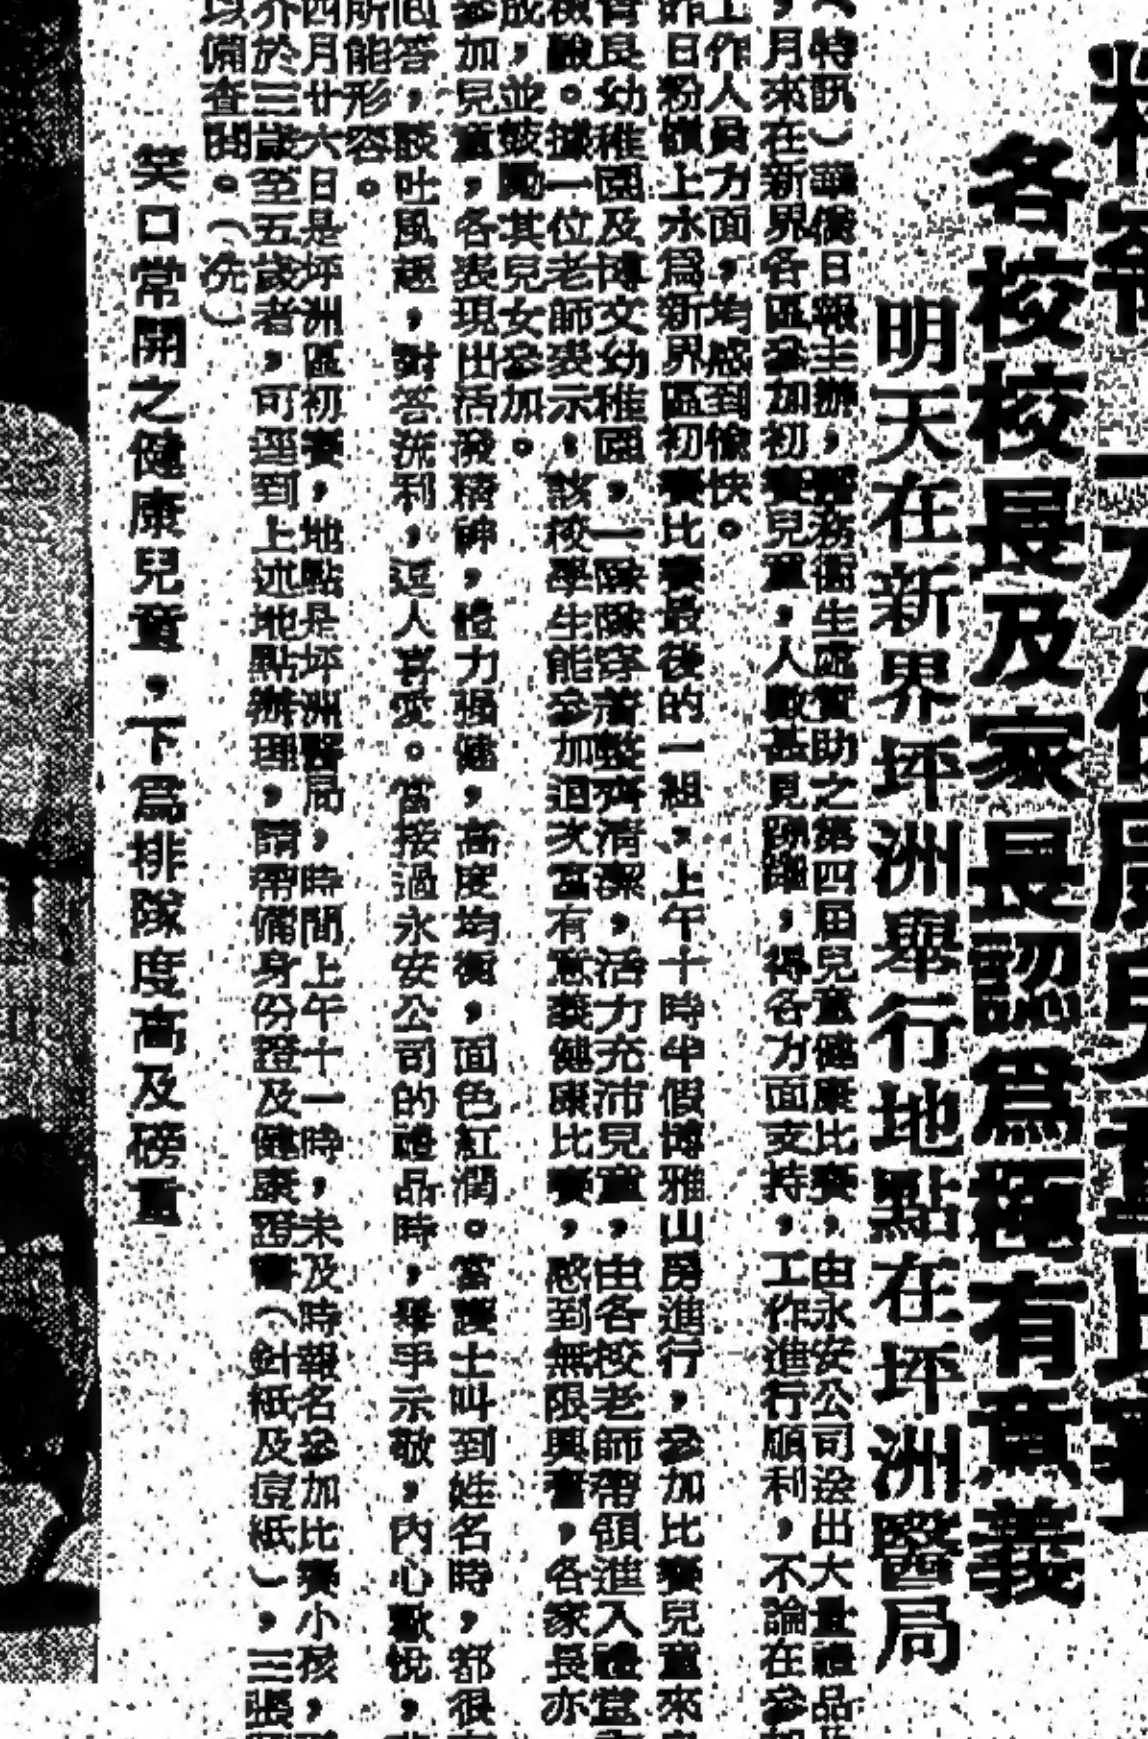 各校校長及家長認爲極有意義
明天在新界坪洲舉行地點在坪洲醫局
(特訊)華僑日報主辦,醫務衞生處贊助之第四屆兒童健康比賽,由永安公司送出大量禮品
,月來在新界各區參加初賽兒童,人數甚見踴躍,得各方面支持,工作進行順利,不論在參加
工作人員方面,均感到愉快。
昨日粉嶺上水爲新界區初賽比賽最後的一組,上午十時半假博雅山房進行,參加比賽兒童來
育良幼稚園及博文幼稚園,一隊隊穿着整齊清潔,活力充沛兒童,由各校老師帶領進入禮堂
檢驗。據一位老師表示,該校學生能參加這次富有意義健康比賽,感到無限興奮,各家長亦
成,並鼓勵其兒女參加。
參加兒童,各表現出活潑精神,體力強健,高度均衡,面色紅潤。當護士叫到姓名時,都很
回答,談吐風趣,對答流利,逗人喜愛。當接過永安公司的禮品時,舉手示敬,內心歡悅,
所能形容。
四月廿六日是坪洲區初賽,地點是坪洲醫局,時間上午十一時,未及時報名參加比賽小孩,
介於三歲至五歲者,可逕到上述地點辦理,請帶備身份證及健康證書(針紙及痘紙),三張
以備查閱。(冼)
笑口常開之健康兒童,下爲排隊度高及磅重